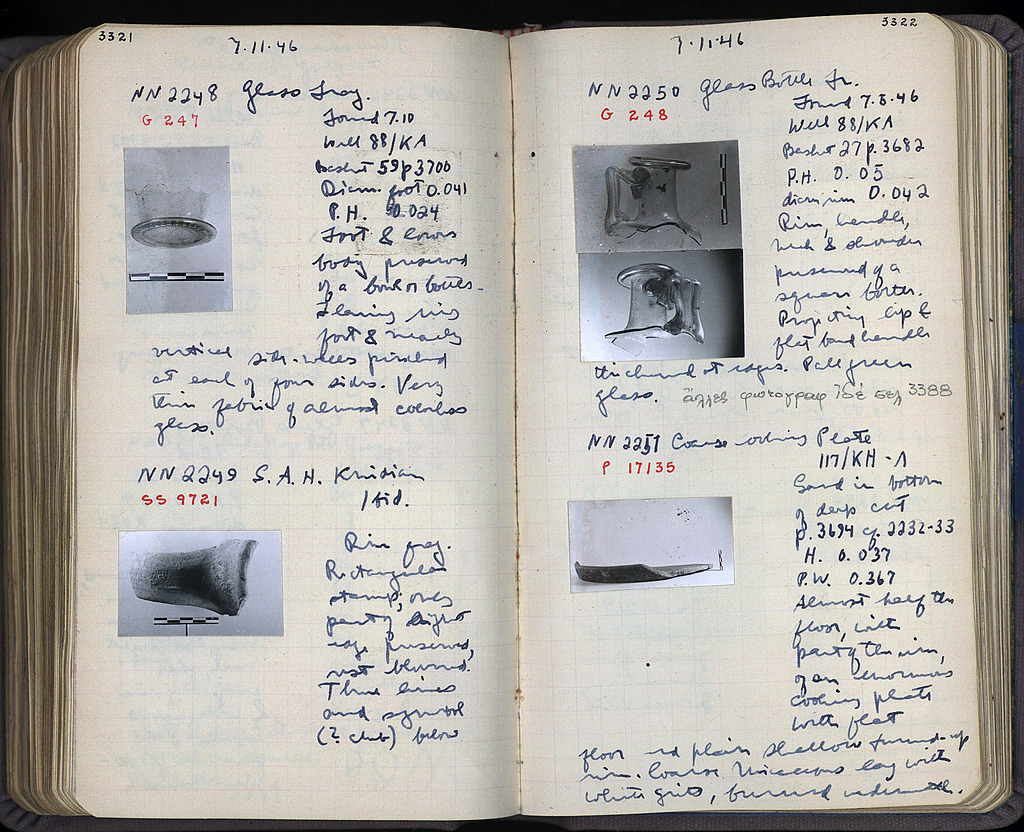 3321
7.11.46
NN 2248 Glass Frag.
G 247
Found 7.10
Well 88/KA
Basket 59 p 3700
Diam. foot 0.041
P.H. 0.024
Foot & lower
body preserved
of a bowl or bottle.
Flaring ring
foot & nearly
vertical side-walls pinched
at each of four sides. Very
thin fabric of almost colorless
glass.
NN 2249 S.A.H. Knidian
SS 9721
Ibid.
Rim frag.
Rectangular
stamp; only
part of right
edge preserved,
rest blurred.
Three lines
and symbol
(? club) below
3322
7.11.46
NN 2250 Glass Bottle Fr.
G 248
Found 7.8.46
Well 88/KA
Basket 27 p. 3682
P.H. 0.05
diam rim 0.042
Rim, handle,
neck & shoulder
preserved of a
square bottle.
Projecting lip &
flat band handle
thickened at edges. Pale green
glass. ἄλλες φωτογραφ ἰδέ σελ 3388
NN 2251 Coarse cooking Plate
P 17135
117/KH-Λ
Sand in bottom
of deep cut
p. 3694 cf. 2232-33
H. 0.037
P.W. 0.367
Almost half the
floor, with
part of the rim,
of an enormous
cooking plate
with flat
floor and plain shallow turned-up
rim. Coarse micaceous clay with
white grits, burned underneath.